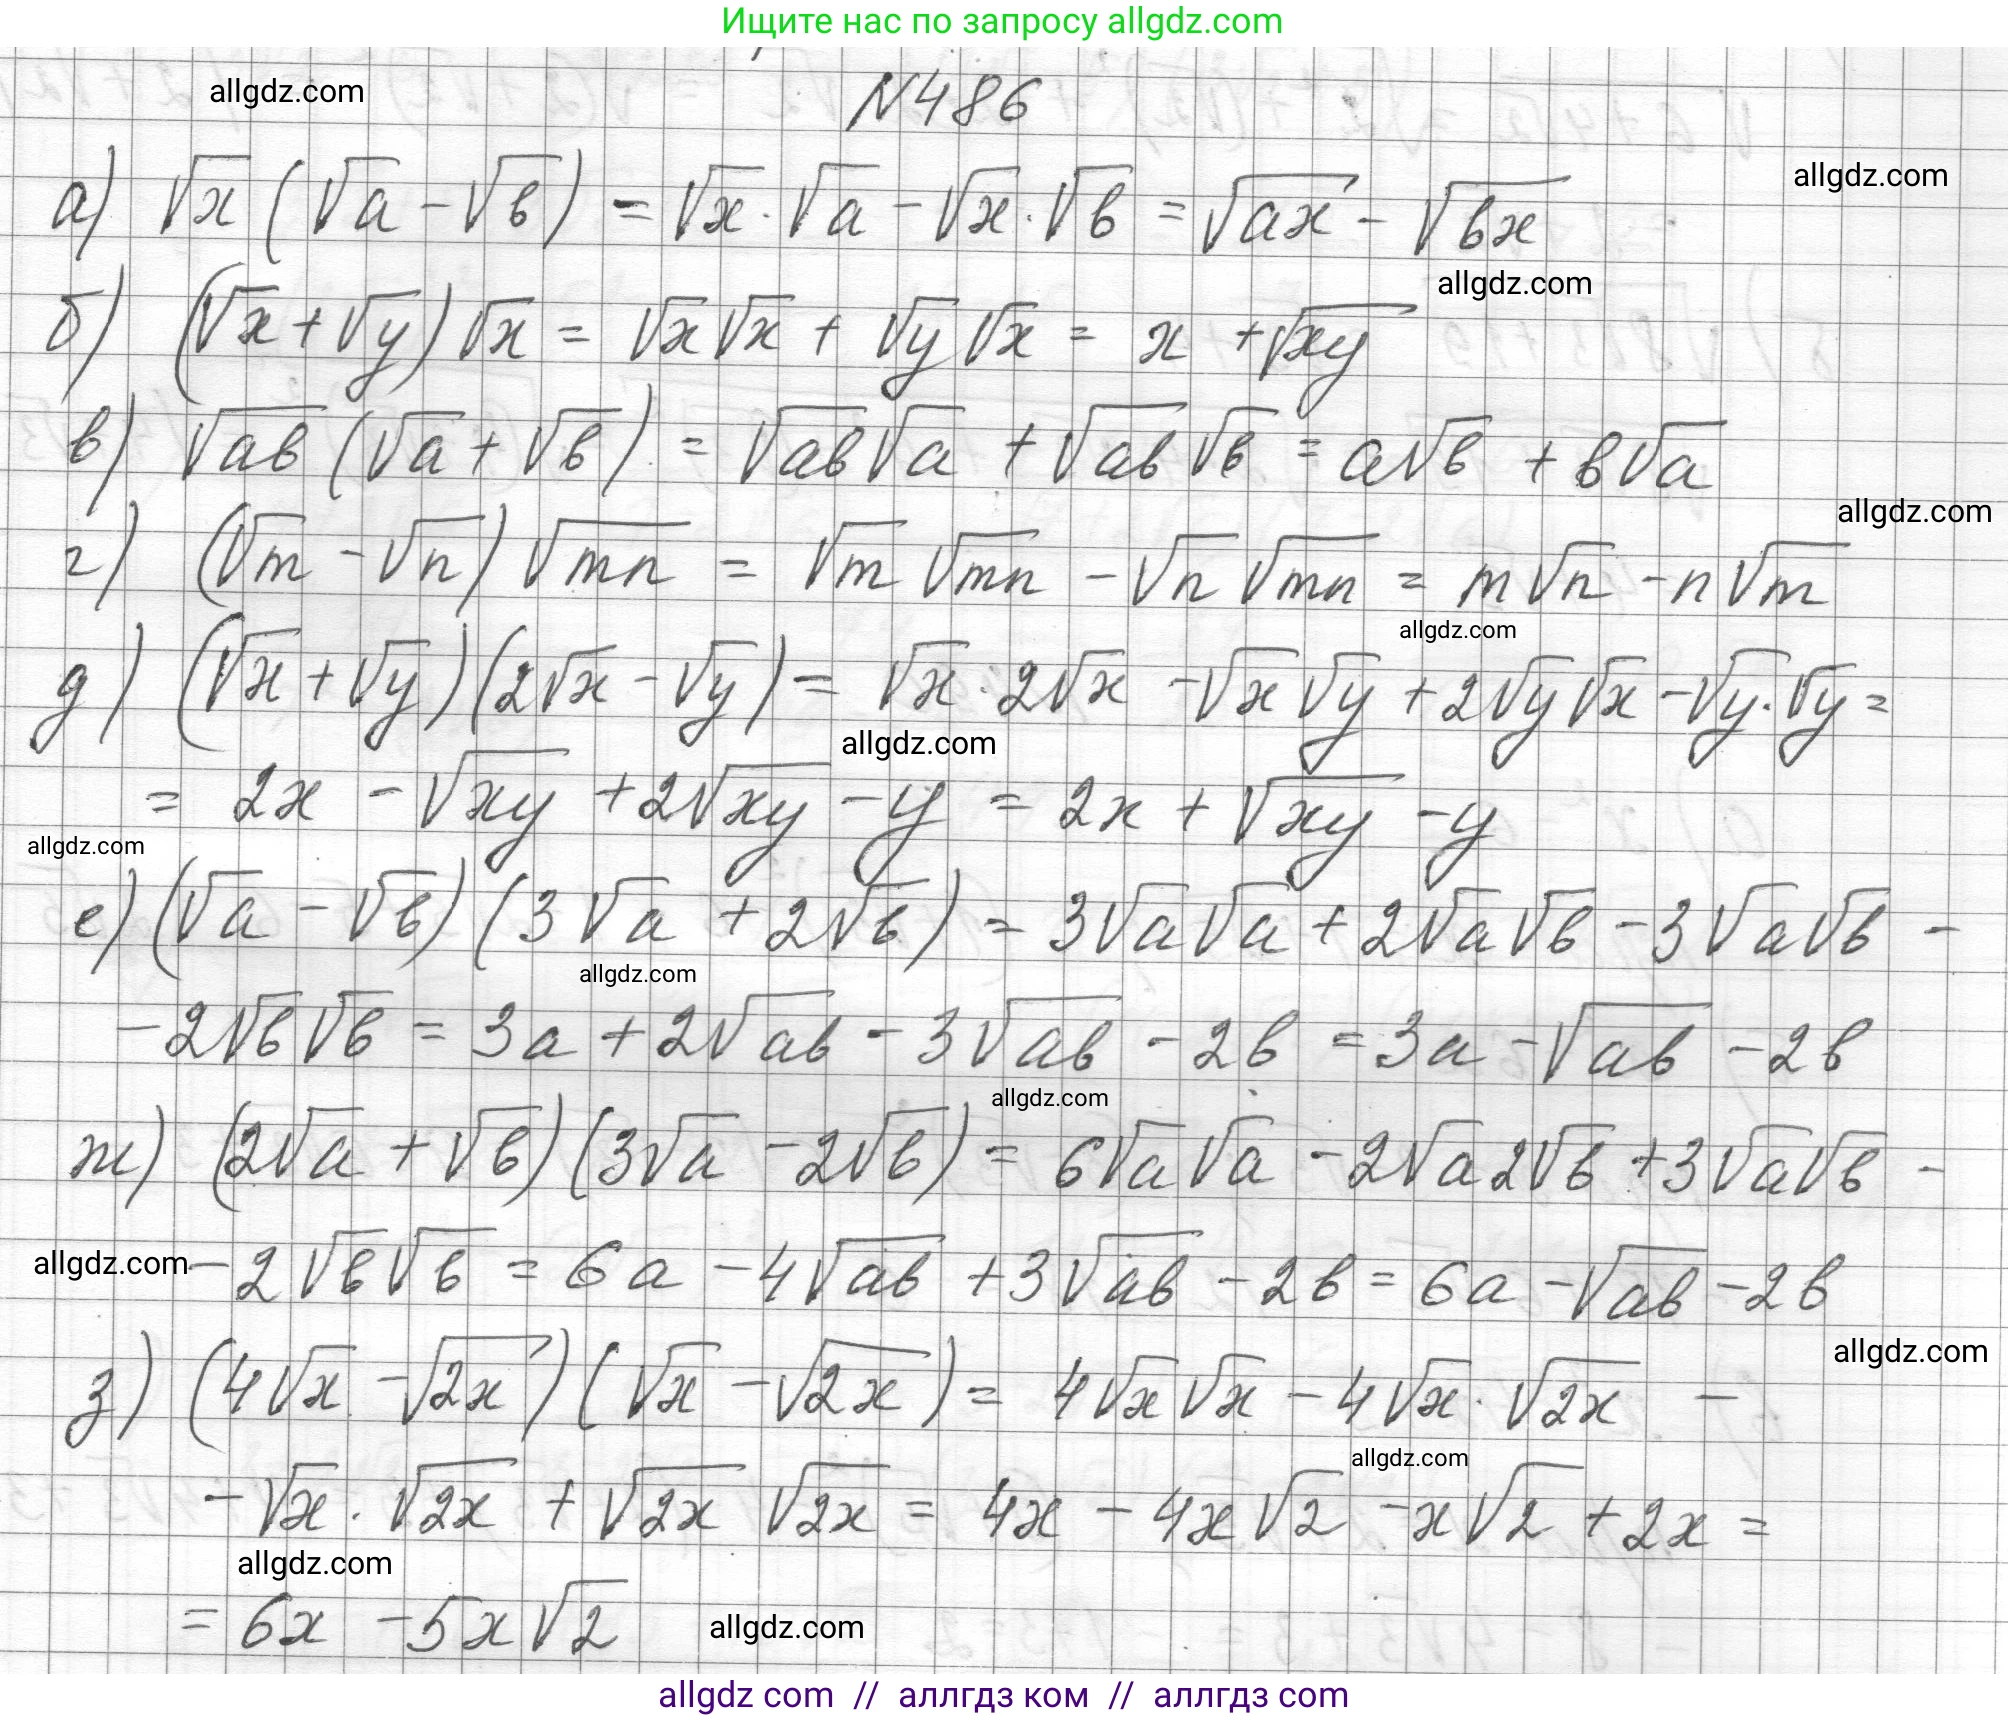 Ищите нас по запросу allgdz.com
allgdz.com
N486
а) √x (√a - √в) = √x · √a - √x · √в = √ax - √вx
allgdz.com
allgdz.com
б) (√x + √y) √x = √x √x + √y √x = x + √xy
в) √aв (√a + √в) = √aв √a + √aв √в = a√в + в√a
allgdz.com
г) (√m - √n) √mn = √m √mn - √n √mn = m√n - n√m
allgdz.com
д) (√x + √y)(2√x - √y) = √x · 2√x - √x √y + 2√y √x - √y · √y =
allgdz.com
= 2x - √xy + 2√xy - y = 2x + √xy - y
allgdz.com
е) (√a - √в)(3√a + 2√в) = 3√a √a + 2√a √в - 3√a √в -
allgdz.com
- 2√в √в = 3a + 2√aв - 3√aв - 2в = 3a - √aв - 2в
allgdz.com
ж) (2√a + √в)(3√a - 2√в) = 6√a √a - 2√a 2√в + 3√a √в -
allgdz.com
- 2√в √в = 6a - 4√aв + 3√aв - 2в = 6a - √aв - 2в
allgdz.com
з) (4√x - √2x)(√x - √2x) = 4√x √x - 4√x · √2x -
allgdz.com
- √x · √2x + √2x √2x = 4x - 4x√2 - x√2 + 2x =
allgdz.com
= 6x - 5x√2
allgdz.com
allgdz com // аллгдз ком // аллгдз com